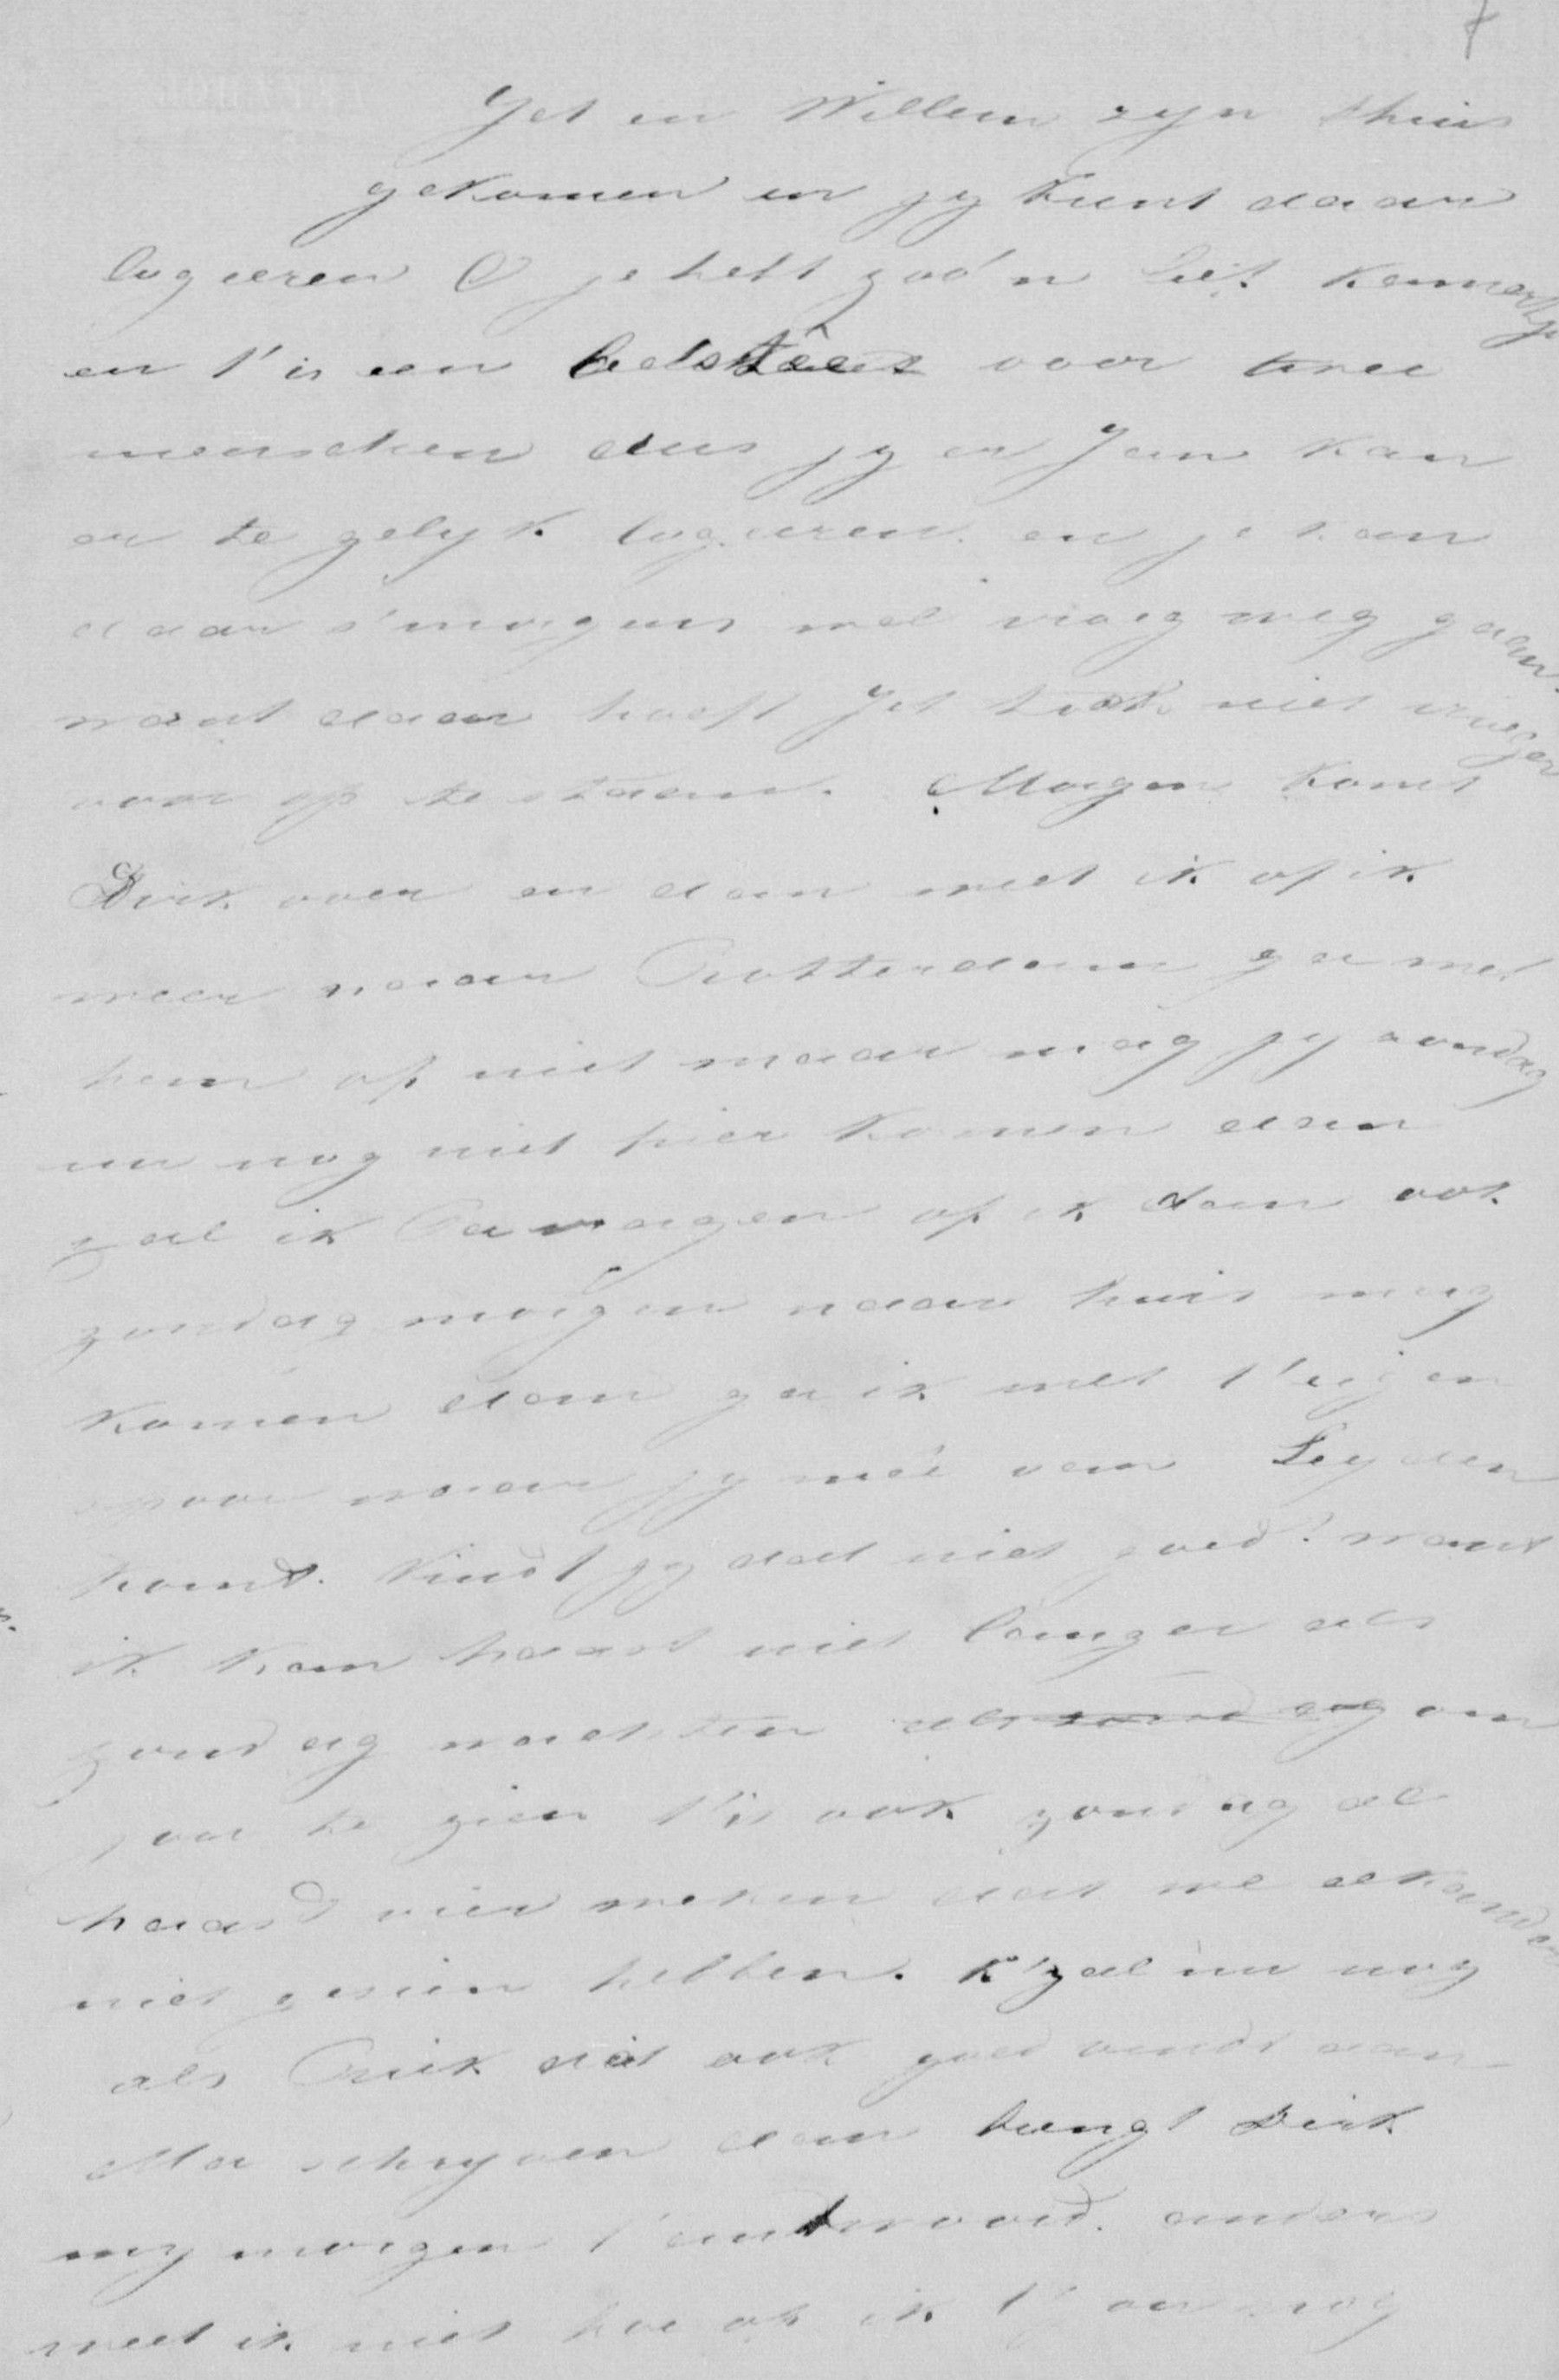 7
Jet en Willem zyn thuis
gekomen en jy kunt daar
logeeren O je hebt zoo'n lief kamertje
en t'is een bedstêes voor twee
menschen dus jy en Jan kan
er te gelyk logeeren en je kan
daar s'morgens wel vroeg weg gaan.
want daar hoeft Jet toch niet vroeger
voor op te staan. Morgen komt
Dirk over en dan weet ik of ik
weer naar Rotterdam ga met
hem of niet maar mag jy zondag
nu nog niet hier komen dan
zal ik Pa vragen of ik dan ook
zondag morgen naar huis mag
komen dan ga ik met t'eigen
spoor waar jy meê van Leyden
komt. Vindt jy dat niet goed? want
ik kan haast niet langer als
zondag wachten als zondag om
jou te zien t'is ook zondag al
haast vier weken dat we elkander
niet gezien hebben. k'zal nu nog
als Anik dit ook goed vindt aan
Ma schryven dan brengt Dirk
my morgen t'andtwoord. anders
weet ik niet hoe of ik t'jou nog